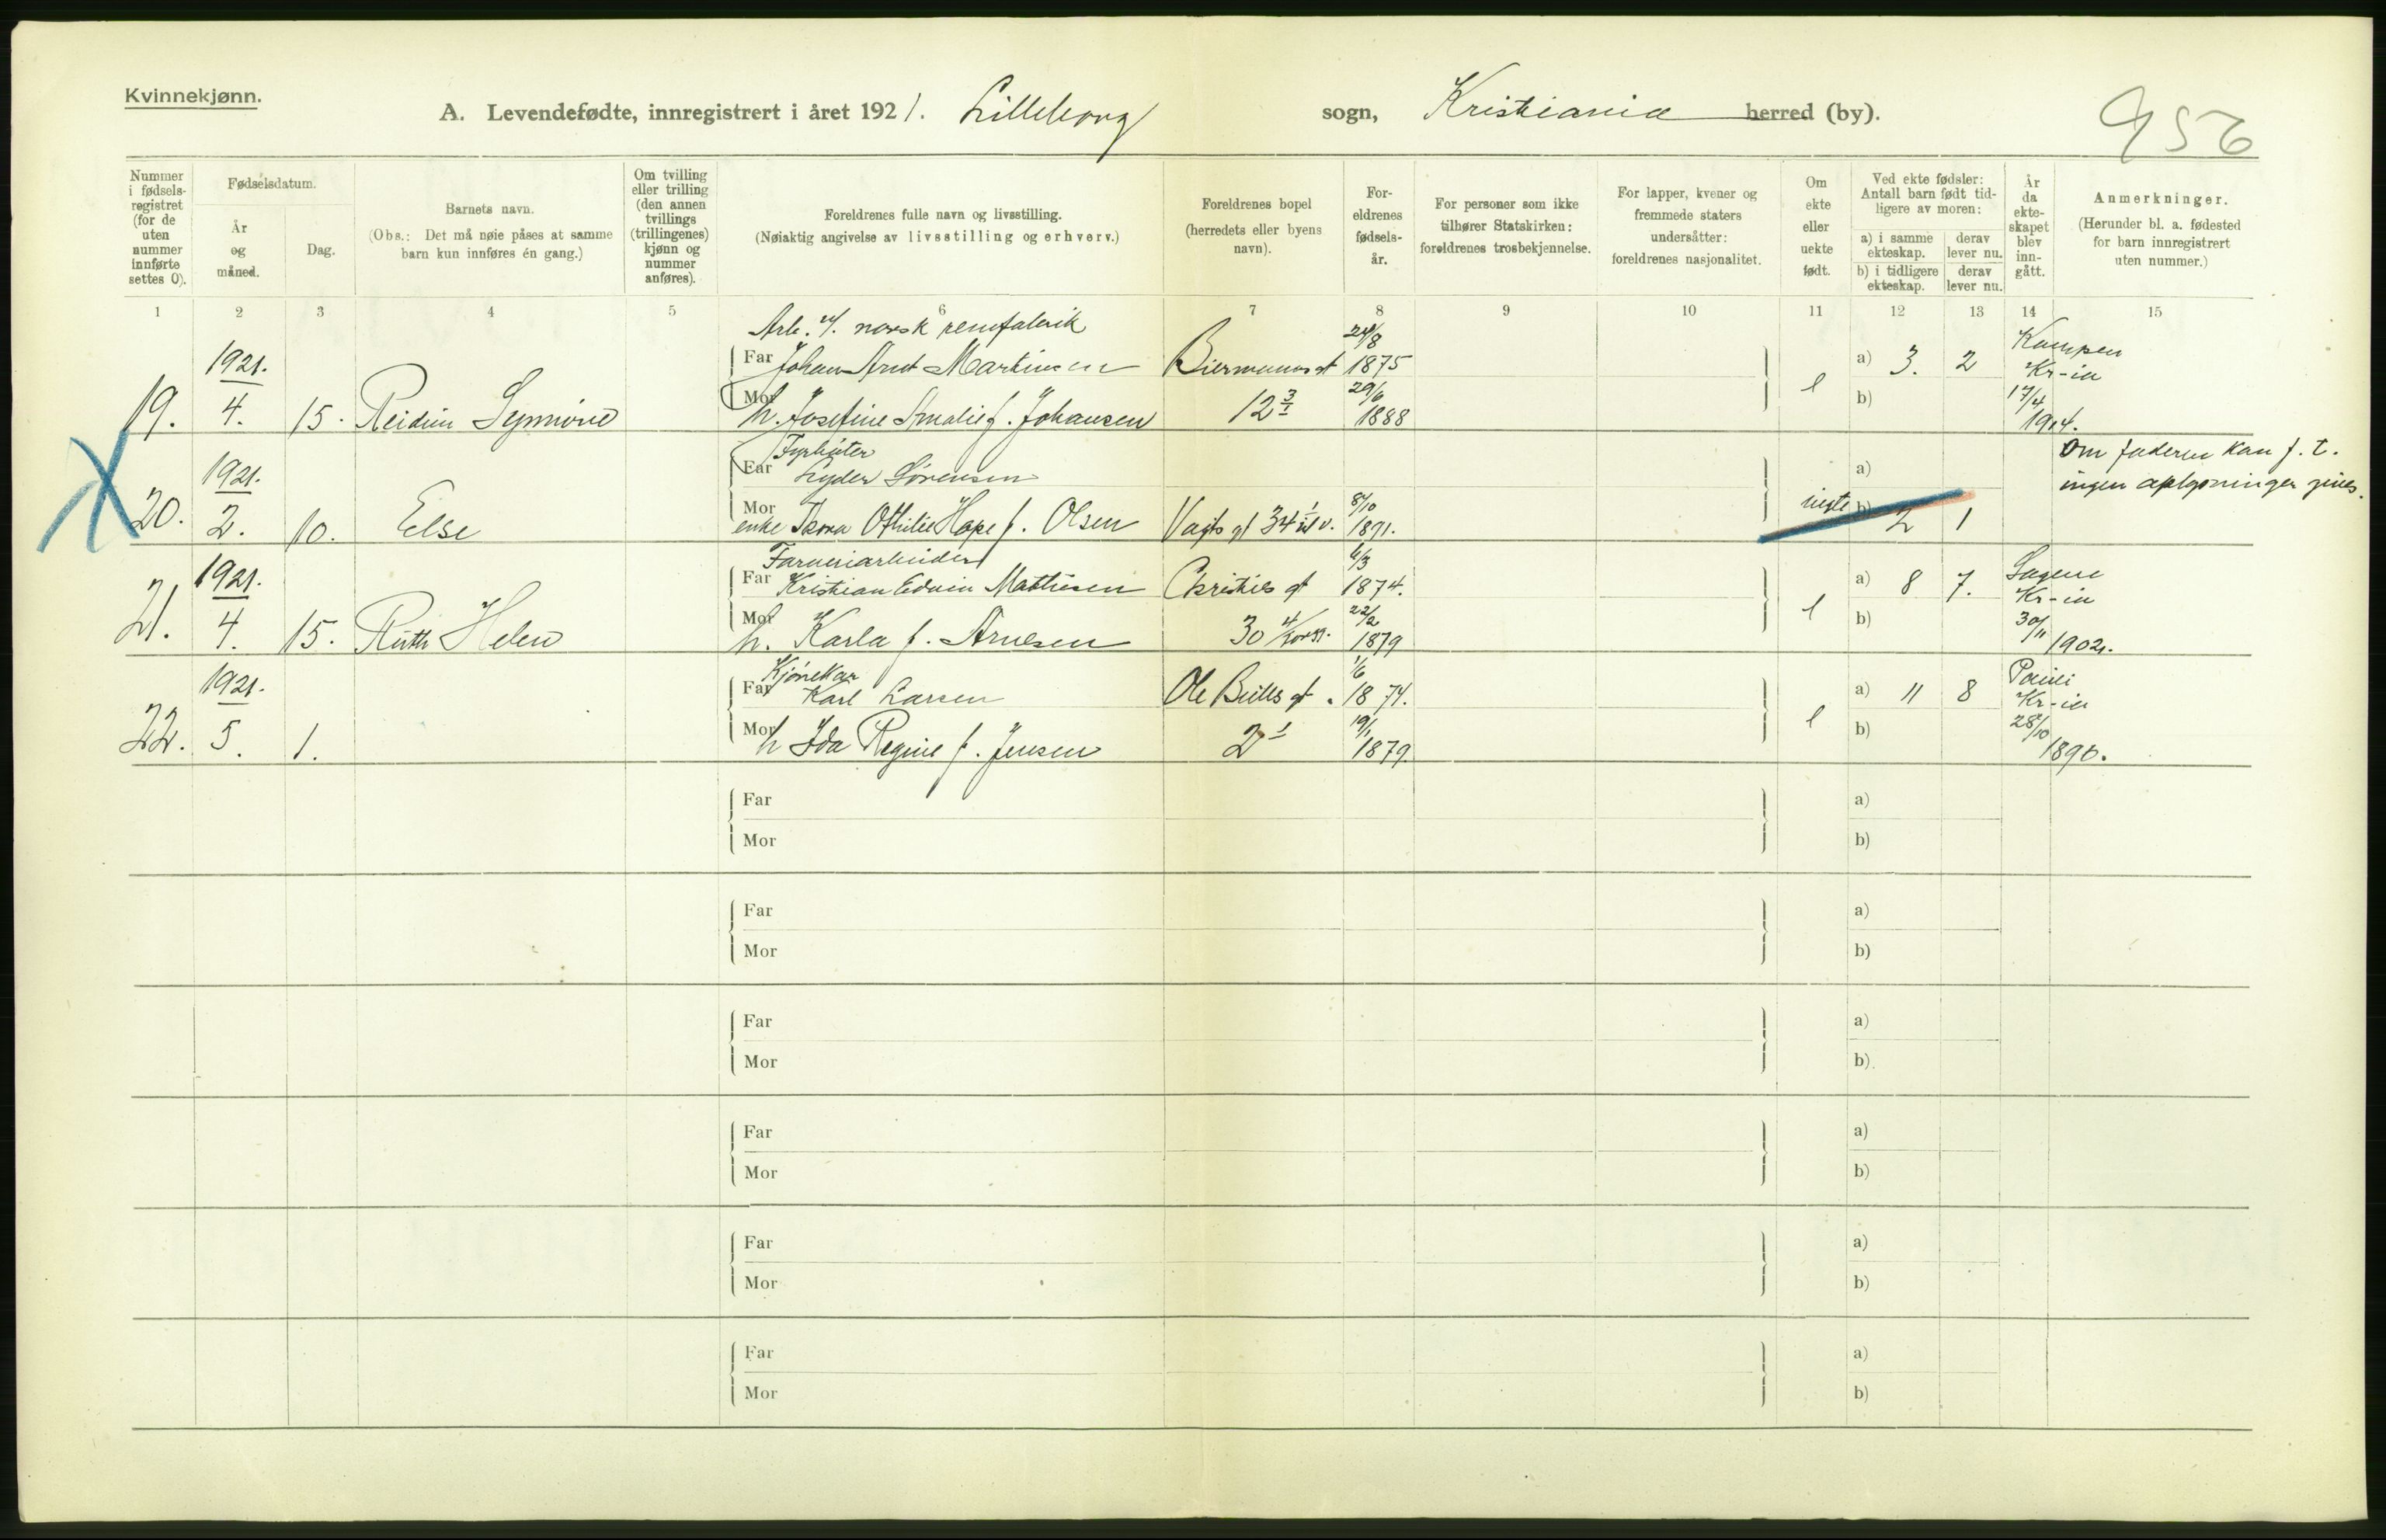 Kvinnekjønn.
A. Levendefødte, innregistrert i året 1921. Lilleborg sogn, Kristiania herred (by).
956
Nummer i fødsels-registret (for de uten nummer innførte settes 0).
Fødselsdatum.
År og måned.
Dag.
Barnets navn.
(Obs.: Det må nøie påses at samme barn kun innføres én gang.)
Om tvilling eller trilling (den annen tvillings (trillingenes) kjønn og nummer anføres).
Foreldrenes fulle navn og livsstilling.
(Nøiaktig angivelse av livsstilling og erhverv.)
Foreldrenes bopel (herredets eller byens navn).
For-eldrenes fødsels-år.
For personer som ikke tilhører Statskirken: foreldrenes trosbekjennelse.
For lapper, kvener og fremmede staters undersåtter: foreldrenes nasjonalitet.
Om ekte eller uekte født.
Ved ekte fødsler: Antall barn født tid-ligere av moren:
a) i samme ekteskap.
derav lever nu.
b) i tidligere ekteskap.
derav lever nu.
År da ekte-skapet blev inn-gått.
Anmerkninger.
(Herunder bl. a. fødested for barn innregistrert uten nummer.)
1 2 3 4 5 6 7 8 9 10 11 12 13 14 15
Arb. v/. norsk remfabrik
1921. Far Johan Arnt Martinsen Biermannsgt 24/8 1875 a) 3. 2 Kampen Kr-ia
19. 4. 15. Reidun Synnöve Mor h. Josefine Amalie f. Johansen 12 3/1 29/6 1888 e b) 17/4 1914.
Fyrböter
1921. Far Lyder Sörensen a) Om faderen kan f. t.
20. 2. 10. Else Mor enke Thora Othilie Hope f. Olsen Vogts gt 34 8/10 1891. uegte b) 2 1 ingen oplysninger gives.
Farveriarbeider
1921. Far Kristian Edvin Mathisen Christies gt 6/3 1874. a) 8 7. Sagene Kr-ia
21. 4. 15. Ruth Helen Mor h. Karla f. Arnesen 30 4/ 22/2 1879 e b) 30/11 1902.
Kjörekar
1921. Far Karl Larsen Ole Bulls gt. 1/6 1874. a) 11 8 Pauli Kr-ia
22. 5. 1. Mor h Ida Regine f. Jensen 2 1 19/1 1879. e b) 28/10 1896.
Far a)
Mor b)
Far a)
Mor b)
Far a)
Mor b)
Far a)
Mor b)
Far a)
Mor b)
Far a)
Mor b)